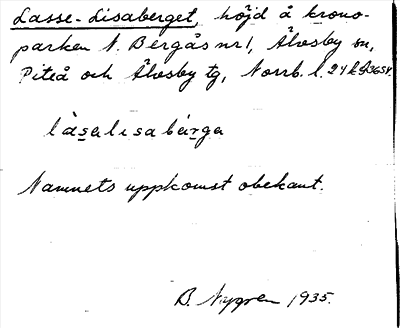 Lasse-Lisaberget, höjd å krono-
parken N. Bergås nr 1, Älvsby sn,
Piteå och Älvsby tg, Norrb. l. 24 k
lásalisabärga
Namnets uppkomst obekant.
B. Nygren 1935.